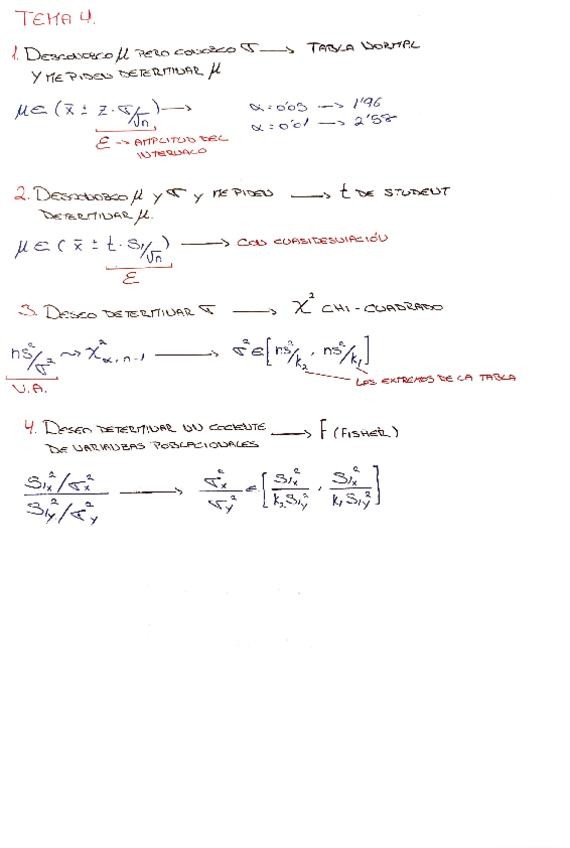 TEMA 4.
1. DESCONOZCO μ PERO CONOZCO σ → TABLA NORMAL
Y ME PIDEN DETERMINAR μ
μ ∈ (x̄ ± z · σ/√n) → α = 0'05 → 1'96
α = 0'01 → 2'58
ε → AMPLITUD DEL
INTERVALO
2. DESCONOZCO μ y σ y ME PIDEN → t DE STUDENT
DETERMINAR μ.
μ ∈ (x̄ ± t · S₁/√n) → CON CUASIDESVIACIÓN
ε
3. DESEO DETERMINAR σ → χ² CHI-CUADRADO
ns²/σ² ⇝ χ²α, n-1 → σ² ∈ [ns²/k₂, ns²/k₁]
V.A. LOS EXTREMOS DE LA TABLA
4. DESEO DETERMINAR UN COCIENTE → F (FISHER)
DE VARIANZAS POBLACIONALES
S₁x²/σx² / S₁y²/σy² → σx²/σy² ∈ [S₁x²/k₂S₁y², S₁x²/k₁S₁y²]